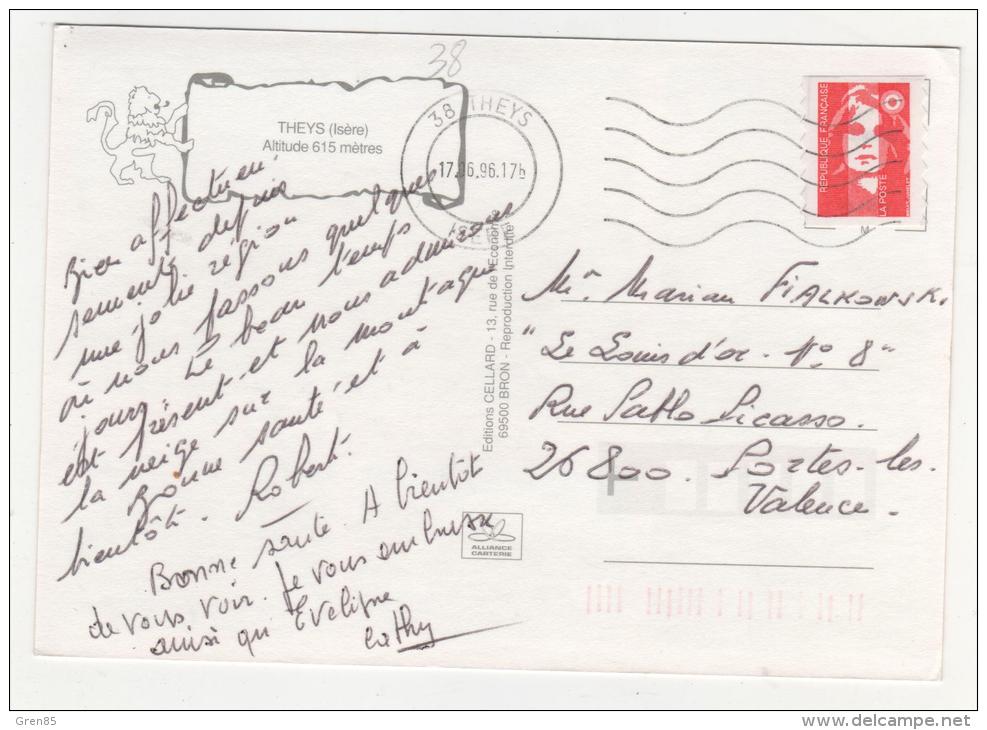 38
THEYS (Isère)
Altitude 615 mètres
38 THEYS
17.06.96.17h
ISERE
RÉPUBLIQUE FRANÇAISE
LA POSTE
M
Bien affectueu
sement depuis
une jolie région
où nous passons quelques
jours. Le beau temps
est présent et nous admirons
la neige sur la montagne
Bonne santé et à
bientôt. Robert.
Bonne santé. A bientôt
de vous voir. Je vous embrasse
ainsi qu'Evelyne
Cathy
Editions CELLARD - 13, rue de l'Economi
69500 BRON - Reproduction Interdite
ALLIANCE
CARTERIE
Mr. Marian FIALKOWSKI.
"Le Louis d'or - No 8"
Rue Pablo Picasso.
26800. Portes-les-
Valence.
Gren85
www.delcampe.net